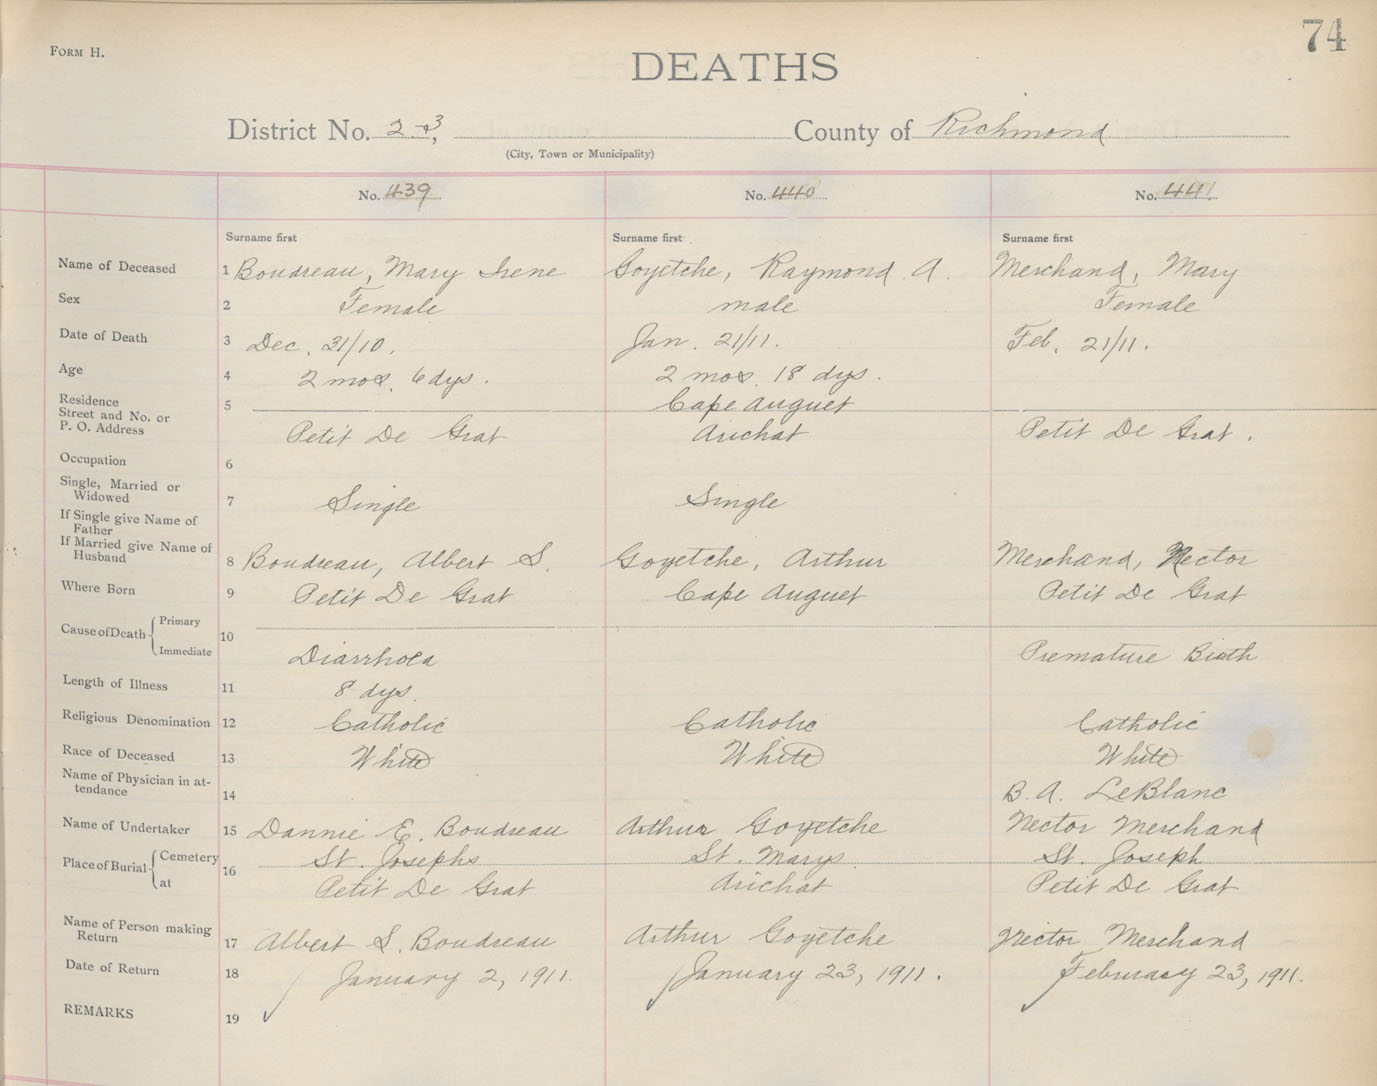 FORM H.
74
DEATHS
District No. 2 & 3, County of Richmond
(City, Town or Municipality)
No. 439 No. 440 No. 441
Surname first Surname first Surname first
Name of Deceased 1 Boudreau, Mary Irene Goyetche, Raymond A. Merchand, Mary
Sex 2 Female male Female
Date of Death 3 Dec. 31/10. Jan. 21/11. Feb. 21/11.
Age 4 2 mos. 6 dys. 2 mos. 18 dys.
Residence 5 Cape Auguet
Street and No. or
P. O. Address Petit De Grat Arichat Petit De Grat.
Occupation 6
Single, Married or
Widowed 7 Single Single
If Single give Name of
Father
If Married give Name of
Husband 8 Boudreau, Albert S. Goyetche, Arthur Merchand, Nector
Where Born 9 Petit De Grat Cape Auguet Petit De Grat
Cause of Death Primary 10
Immediate Diarrhoea Premature Birth
Length of Illness 11 8 dys
Religious Denomination 12 Catholic Catholic Catholic
Race of Deceased 13 White White White
Name of Physician in at-
tendance 14 B. A. LeBlanc
Name of Undertaker 15 Dannie E. Boudreau Arthur Goyetche Nector Merchand
Place of Burial Cemetery 16 St. Josephs St. Marys St. Joseph
at Petit De Grat Arichat Petit De Grat
Name of Person making
Return 17 Albert S. Boudreau Arthur Goyetche Nector Merchand
Date of Return 18 January 2, 1911. January 23, 1911. February 23, 1911.
REMARKS 19